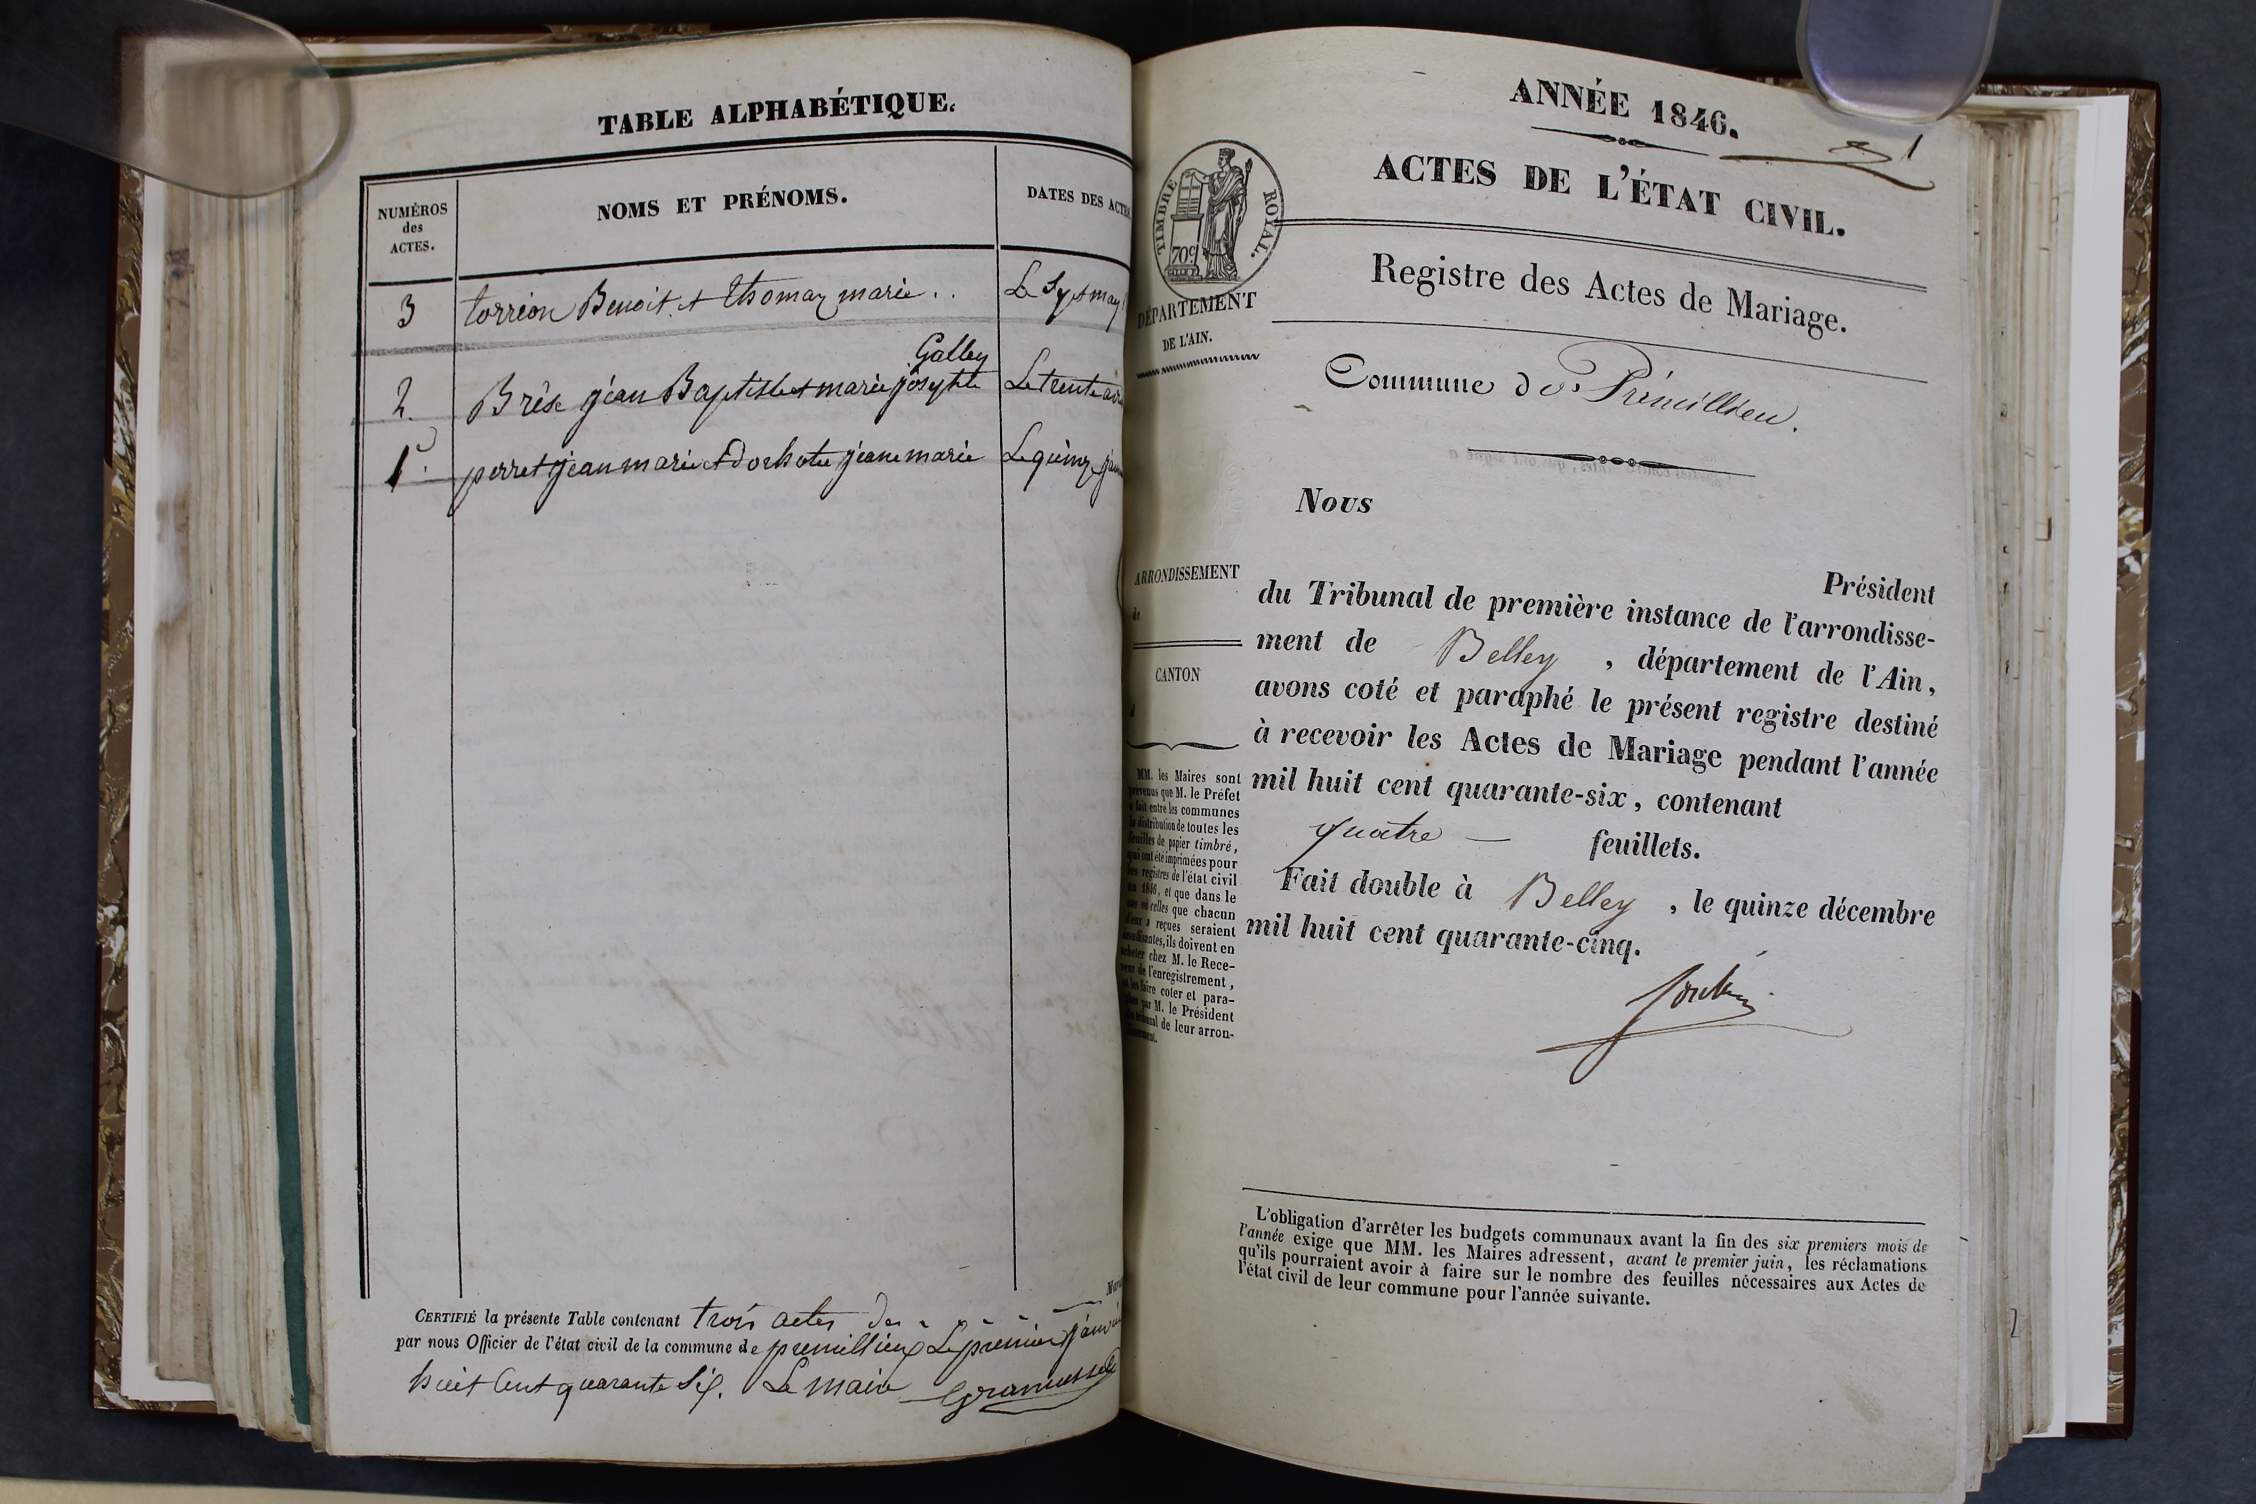 TABLE ALPHABÉTIQUE.
NUMÉROS
des
ACTES.
NOMS ET PRÉNOMS.
DATES DES ACTES
3 torrion Benoit et thomaz marie . . Le Sept may
Galley
2. Brêse jéan Baptiste et marie josephte Le trente
1. perret jean marie et jeane marie Le quinze
CERTIFIÉ la présente Table contenant trois actes de
par nous Officier de l'état civil de la commune de premillieux Le premier janvier
huit Cent quarante Six. Le maire
ANNÉE 1846.
1
ACTES DE L'ÉTAT CIVIL.
TIMBRE ROYAL.
70c
DÉPARTEMENT
DE L'AIN.
Registre des Actes de Mariage.
Commune de Prémillieu.
Nous
Président
du Tribunal de première instance de l'arrondisse-
ment de Belley , département de l'Ain,
avons coté et paraphé le présent registre destiné
à recevoir les Actes de Mariage pendant l'année
mil huit cent quarante-six, contenant
quatre — feuillets.
Fait double à Belley , le quinze décembre
mil huit cent quarante-cinq.
ARRONDISSEMENT
de
CANTON
d
MM. les Maires sont
prévenus que M. le Préfet
a fait entre les communes
la distribution de toutes les
feuilles de papier timbré,
qui ont été imprimées pour
les registres de l'état civil
en 1846, et que dans le
cas où celles que chacun
d'eux a reçues seraient
insuffisantes, ils doivent en
acheter chez M. le Rece-
veur de l'enregistrement,
et les faire coter et para-
pher par M. le Président
du tribunal de leur arron-
dissement.
L'obligation d'arrêter les budgets communaux avant la fin des six premiers mois de
l'année exige que MM. les Maires adressent, avant le premier juin, les réclamations
qu'ils pourraient avoir à faire sur le nombre des feuilles nécessaires aux Actes de
l'état civil de leur commune pour l'année suivante.